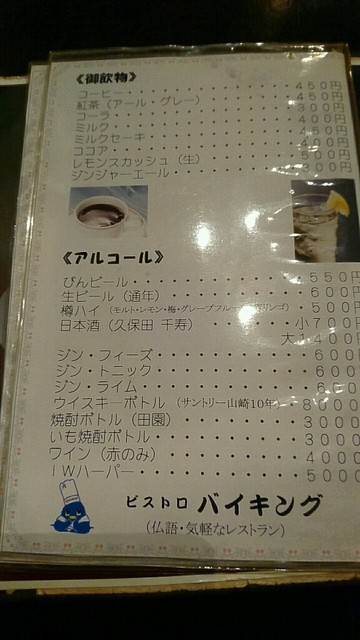 《御飲物》
コーヒー 450円
紅茶（アール・グレー） 450円
コーラ 300円
ミルク 400円
ミルクセーキ 450円
ココア 400円
レモンスカッシュ（生） 500円
ジンジャーエール 300円
《アルコール》
びんビール 550円
生ビール（通年） 600円
樽ハイ（モルト・レモン・梅・グレープフルーツ 500円
日本酒（久保田 千寿） 小700円
大1400円
ジン・フィーズ 600
ジン・トニック 600
ジン・ライム 600
ウイスキーボトル（サントリー山崎10年） 8000
焼酎ボトル（田園） 3000
いも焼酎ボトル 3000
ワイン（赤のみ） 4000
IWハーパー 5000
ビストロ バイキング
（仏語・気軽なレストラン）